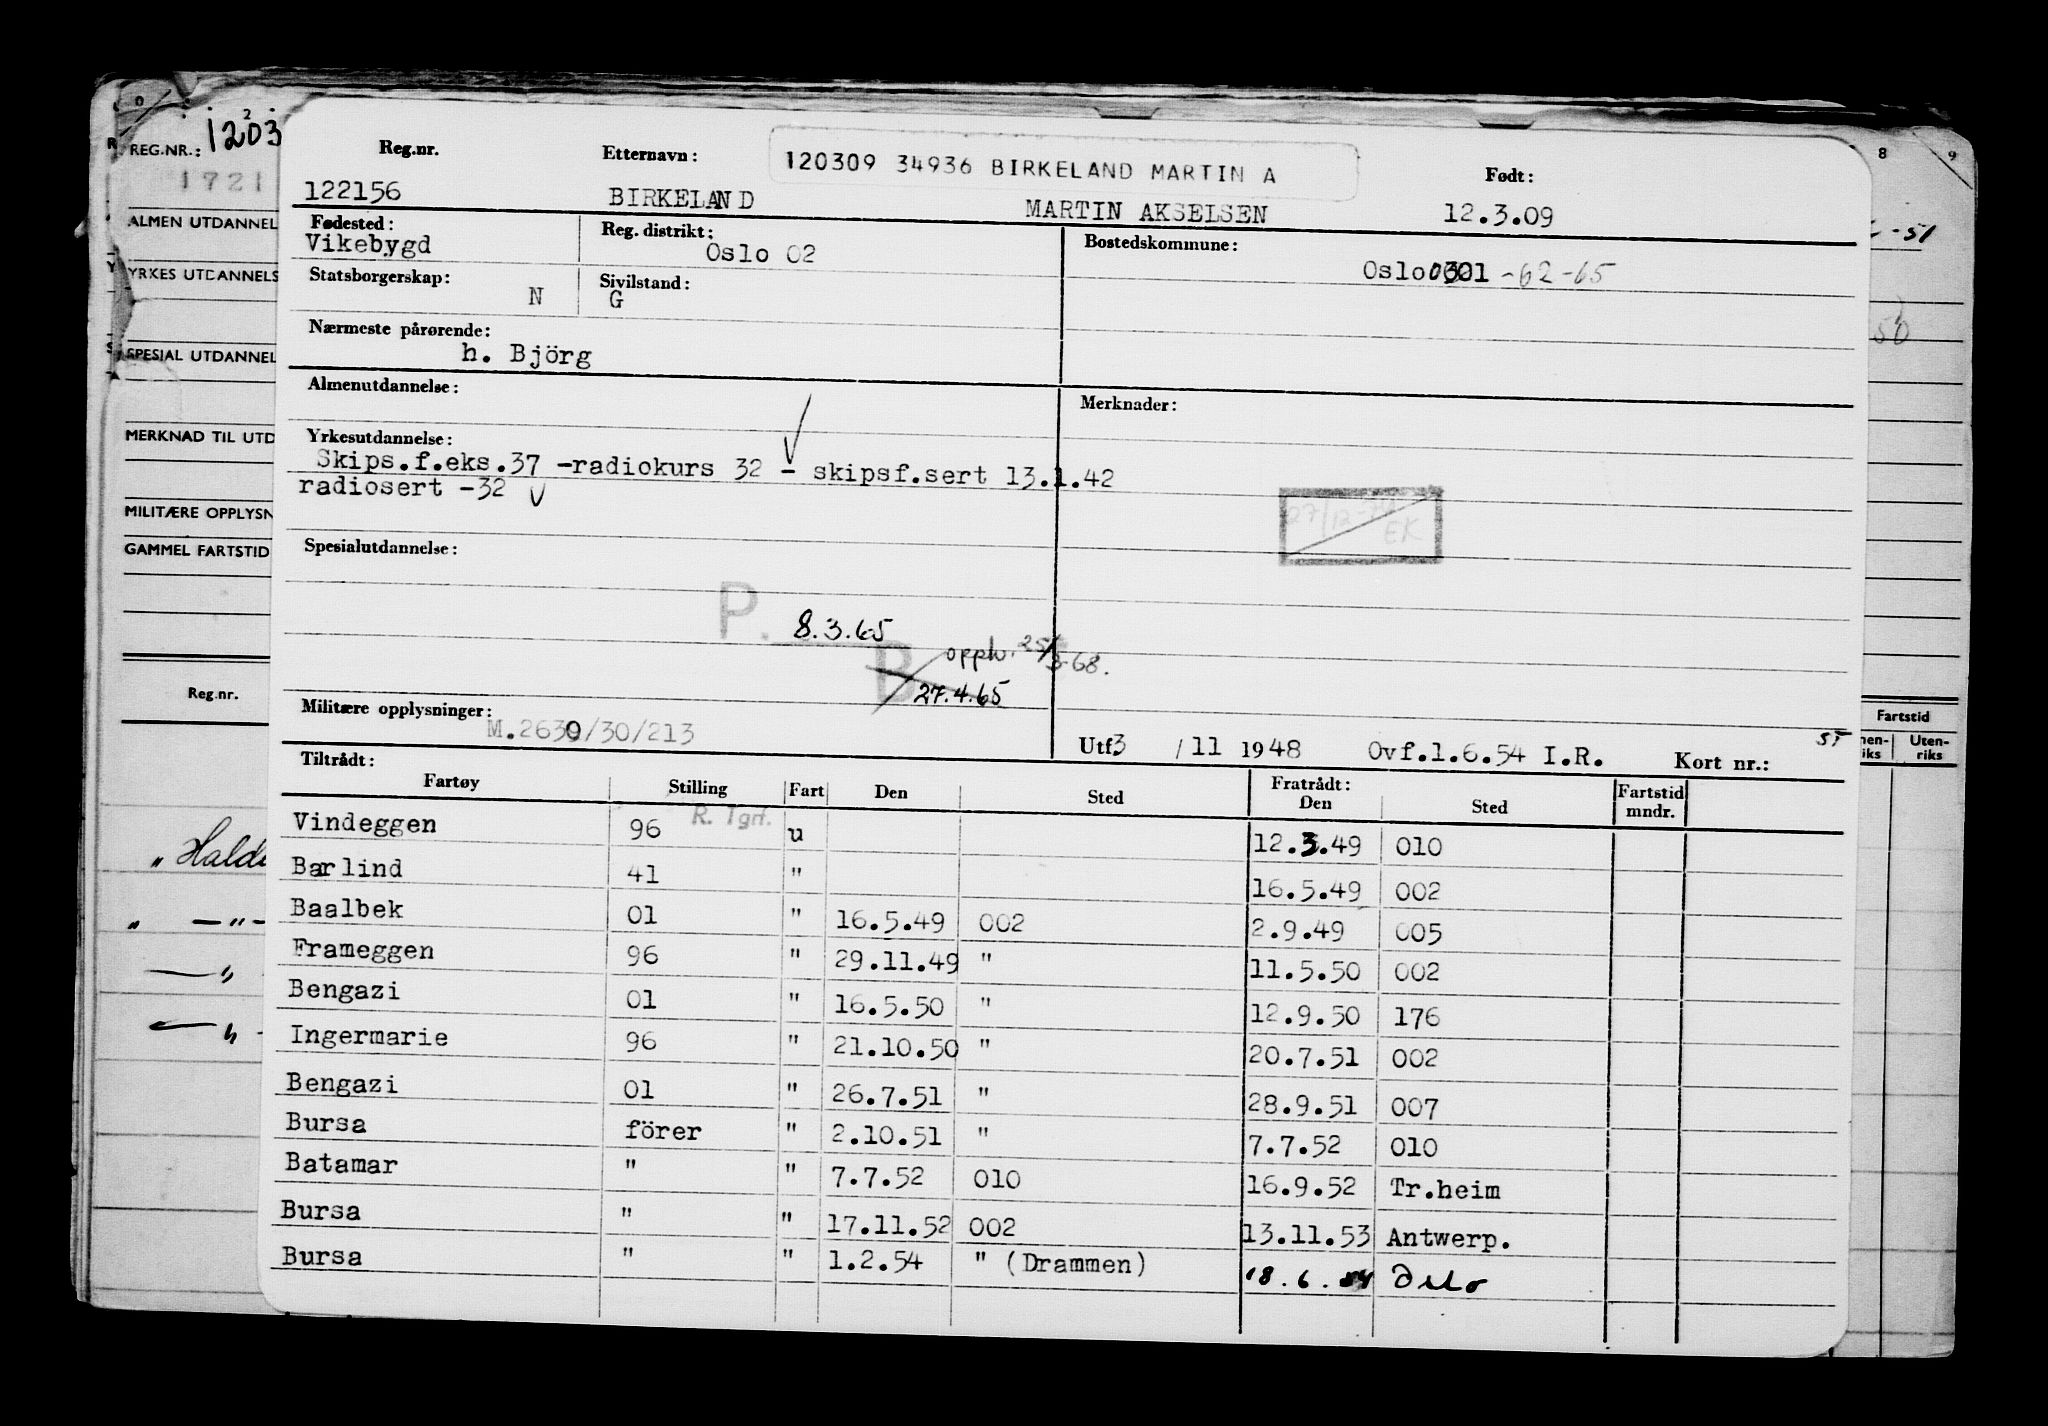 REG.NR.: 1203
1721
ALMEN UTDANNEL
YRKES UTDANNELS
SPESIAL UTDANNEL
MERKNAD TIL UTD
MILITÆRE OPPLYSN
GAMMEL FARTSTID
Reg.nr.
„ Halde
„ —"—
Reg.nr. Etternavn: 120309 34936 BIRKELAND MARTIN A Født:
122156 BIRKELAND MARTIN AKSELSEN 12.3.09
Fødested: Reg. distrikt: Bostedskommune:
Vikebygd Oslo 02 Oslo 0301 -62-65
Statsborgerskap: N Sivilstand: G
Nærmeste pårørende:
h. Björg
Almenutdannelse: Merknader:
Yrkesutdannelse:
Skips.f.eks.37 -radiokurs 32 - skipsf.sert 13.1.42
radiosert -32
27/12- EK
Spesialutdannelse:
P. 8.3.65
B opph. 25/3-68.
27.4.65
Militære opplysninger:
M.2639/30/213
Utf3 /11 1948 Ovf.1.6.54 I.R. Kort nr.:
Tiltrådt: Fratrådt:
Fartøy Stilling Fart Den Sted Den Sted Fartstid mndr.
R. Tgrf.
Vindeggen 96 u 12.3.49 010
Barlind 41 " 16.5.49 002
Baalbek 01 " 16.5.49 002 2.9.49 005
Frameggen 96 " 29.11.49 " 11.5.50 002
Bengazi 01 " 16.5.50 " 12.9.50 176
Ingermarie 96 " 21.10.50 " 20.7.51 002
Bengazi 01 " 26.7.51 " 28.9.51 007
Bursa förer " 2.10.51 " 7.7.52 010
Batamar " " 7.7.52 010 16.9.52 Tr.heim
Bursa " " 17.11.52 002 13.11.53 Antwerp.
Bursa " " 1.2.54 " (Drammen) 18.6.54 Oslo
8 9
-51
50
Fartstid
Uten-
riks